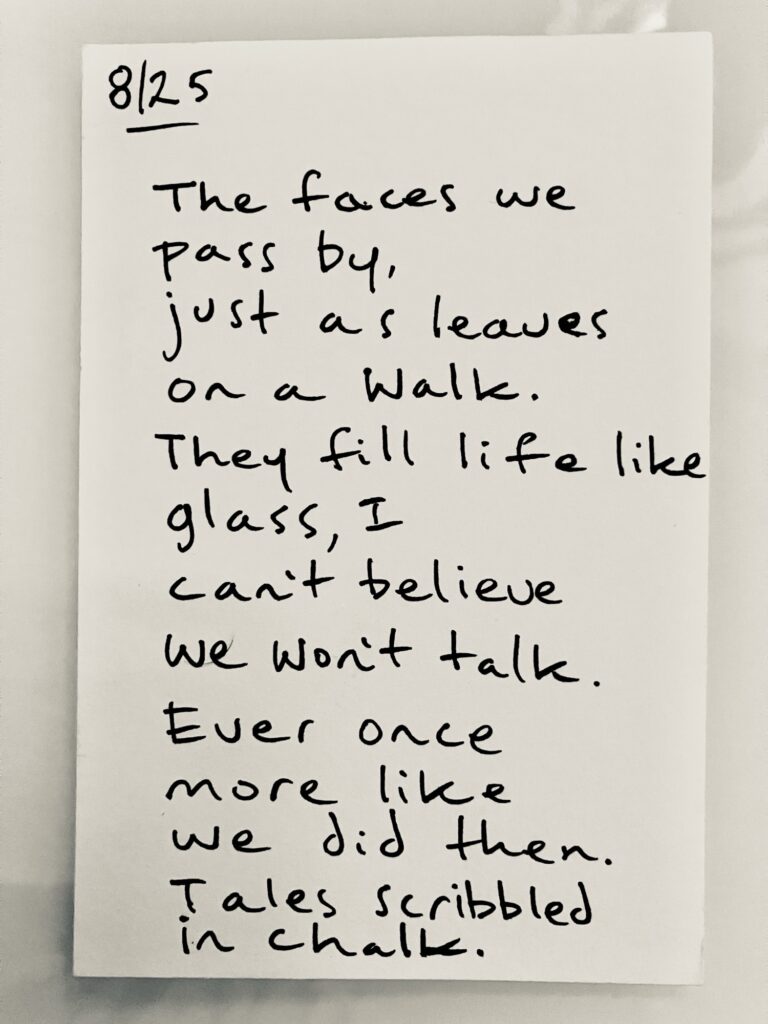 8/25
The faces we
pass by,
just as leaves
on a Walk.
They fill life like
glass, I
can't believe
We Won't talk.
Ever once
more like
we did then.
Tales scribbled
in chalk.